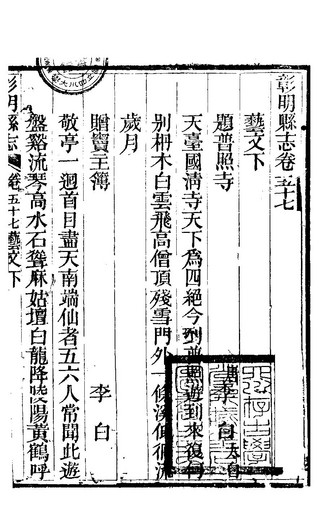 彰明縣志卷五十七
藝文下
題普照寺
李白
天臺國清寺天下為四絕今到普照遊到來復何
別柟木白雲飛高僧頂殘雪門外一條溪幾迴流
歲月
贈竇主簿 李白
敬亭一迴首目盡天南端仙者五六人常聞此遊
盤谿流琴高水石聳麻姑壇白龍降陵陽黃鶴呼
彰明縣志 卷五十七藝文下